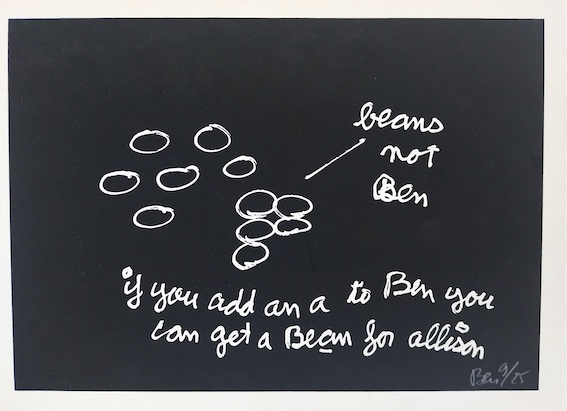 beans
not
Ben
if you add an a to Ben you
can get a Bean for allison
Ben 9/25